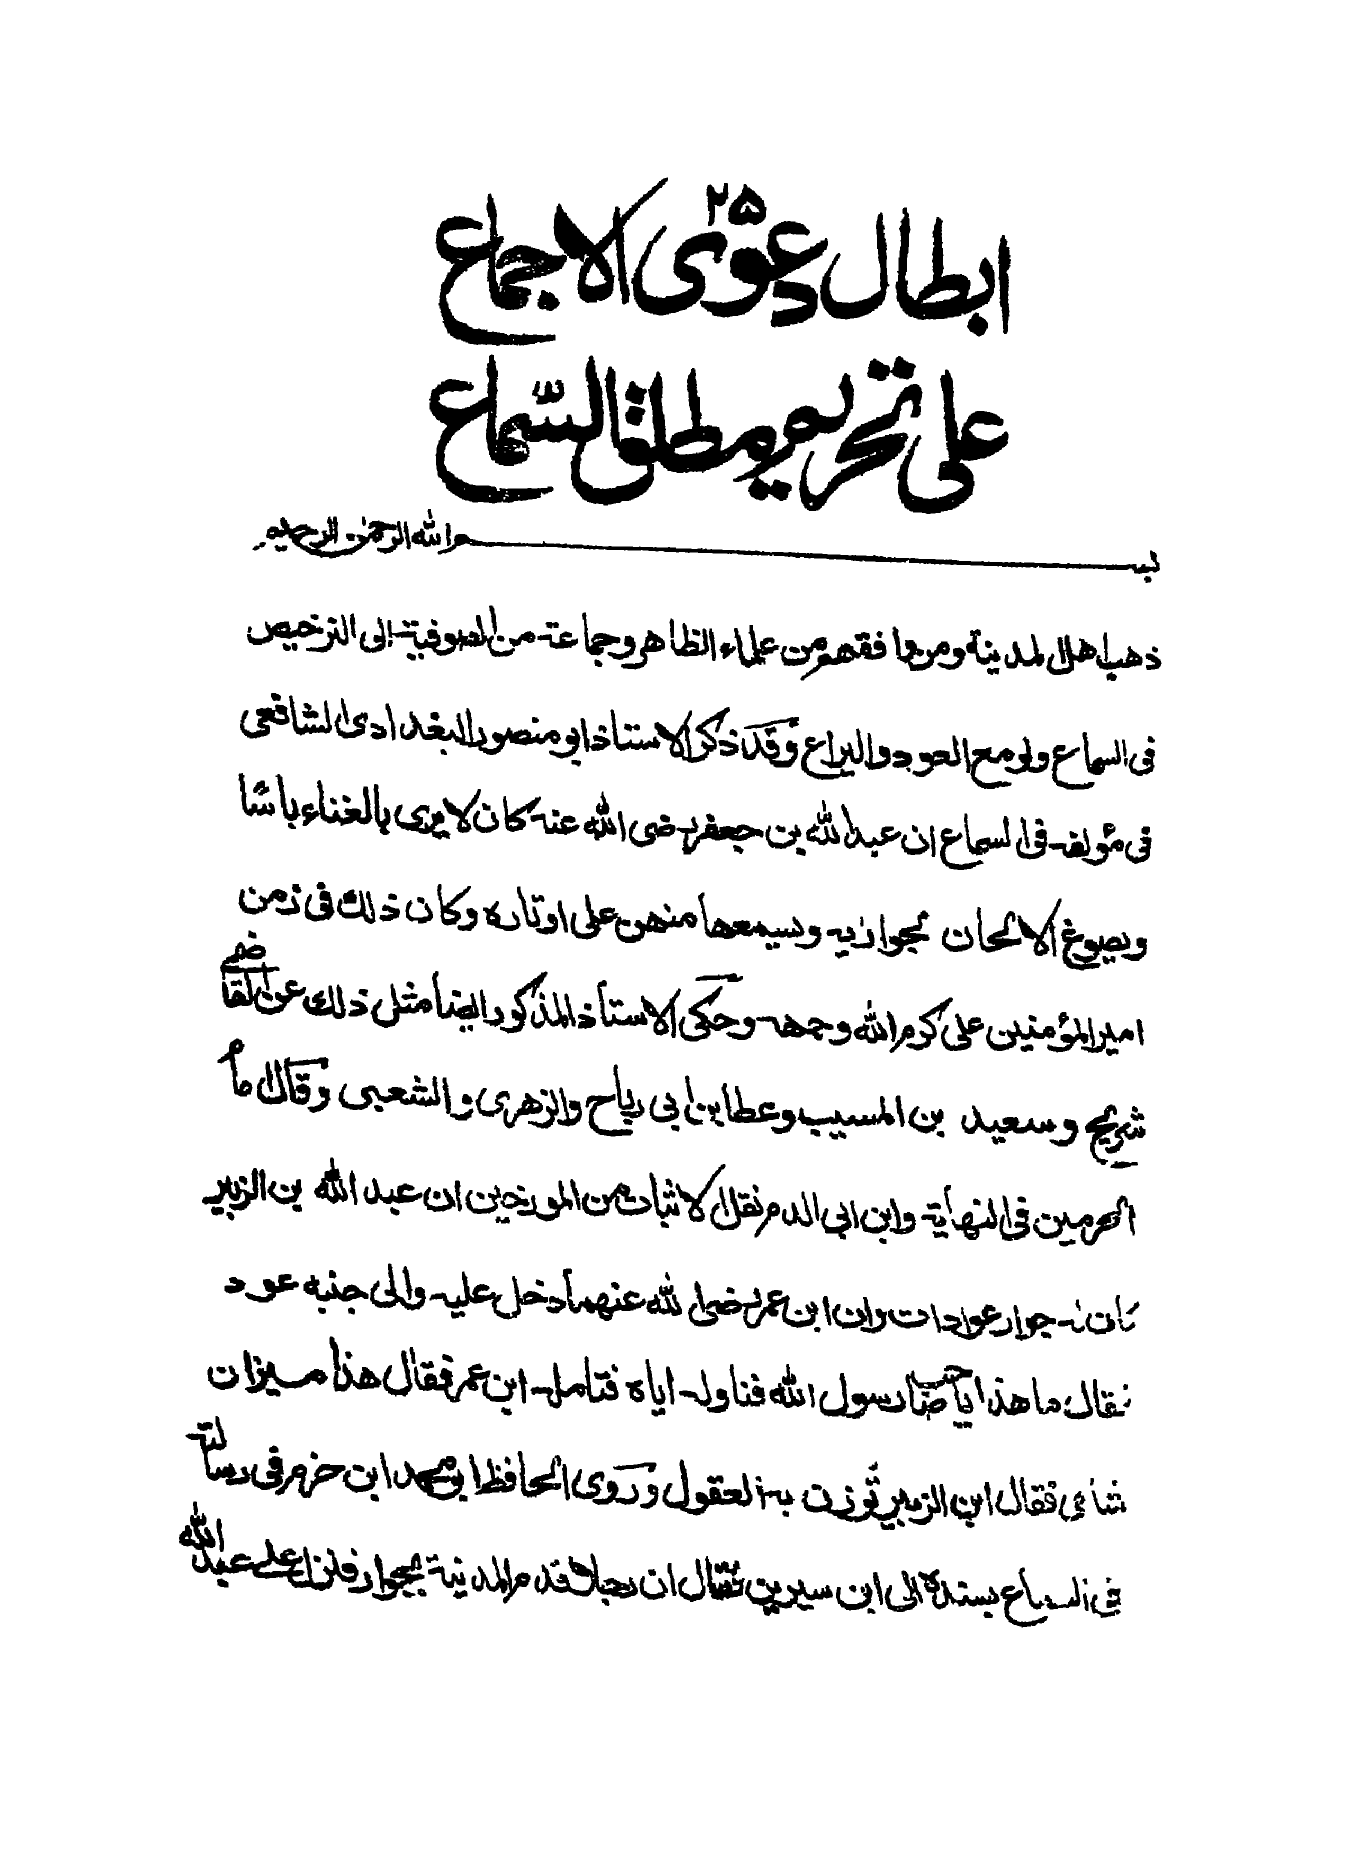 ٢٥
ابطال دعوى الاجماع
على تحريم مطلق السّماع
بسم الله الرحمن الرحيم
ذهب اهل المدينة ومن وافقهم من علماء الظاهر وجماعة من الصوفية إلى الترخيص
فى السماع ولو مع العود واليراع وقد ذكر الاستاذ ابو منصور البغدادى الشافعى
فى مؤلفه فى السماع ان عبد الله بن جعفر رضى الله عنه كان لا يرى بالغناء باشا
ويصوغ الالحان لجواريه ويسمعها منهن على اوتاره وكان ذلك فى زمن
امير المؤمنين على كرم الله وجهه وحكى الاستاذ المذكور ايضا مثل ذلك عن القاضى
شريح وسعيد بن المسيب وعطا بن ابى رباح والزهرى والشعبى وقال امام
الحرمين فى النهاية وابن ابى الدم نقل الاثبات من المورخين ان عبد الله بن الزبير
كان له جوار عوادات وان ابن عمر رضى الله عنهما دخل عليه والى جنبه عود
فقال ما هذا يا صاحب رسول الله فناوله اياه فتامله ابن عمر فقال هذا ميزان
شامى فقال ابن الزبير توزن به العقول وروى الحافظ ابو محمد ابن حزم فى رسالته
فى السماع بسنده الى ابن سيرين قال ان رجلا قدم المدينة بجوار فنزل على عبد الله